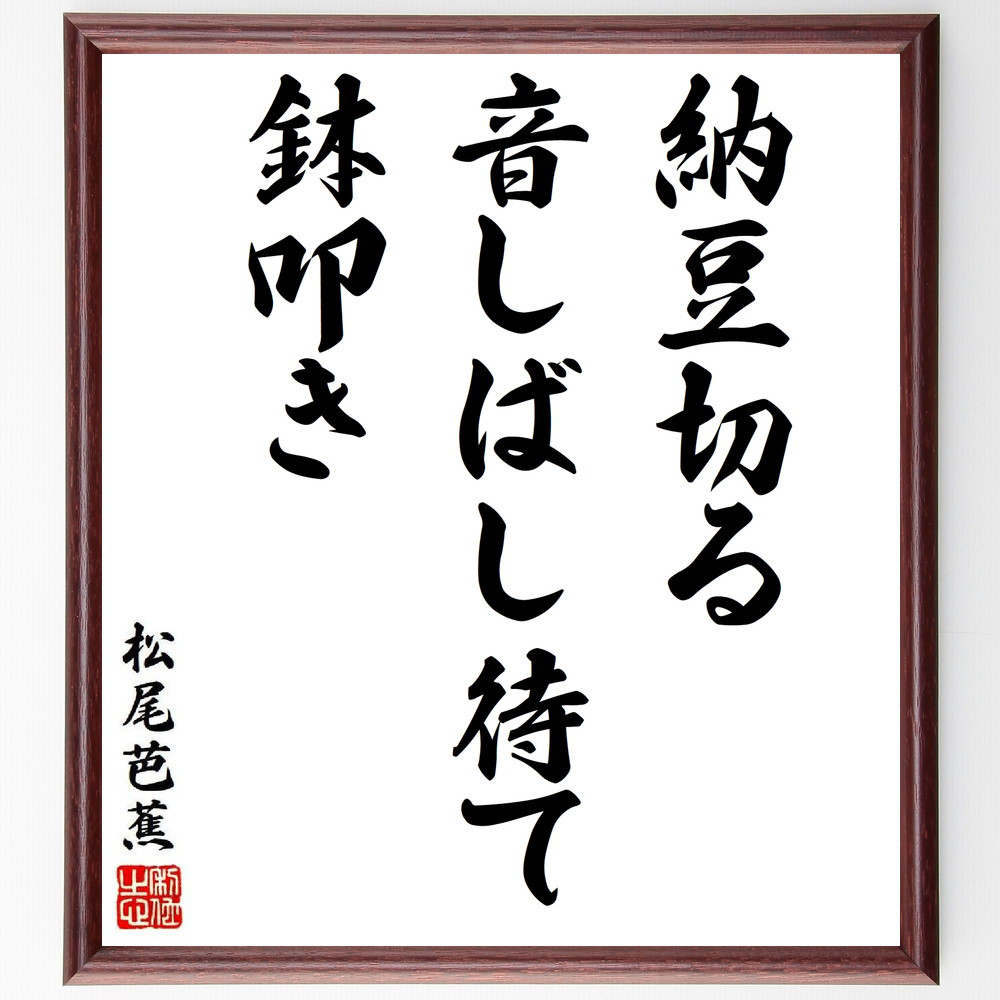 納豆切る
音しばし待て
鉢叩き
松尾芭蕉